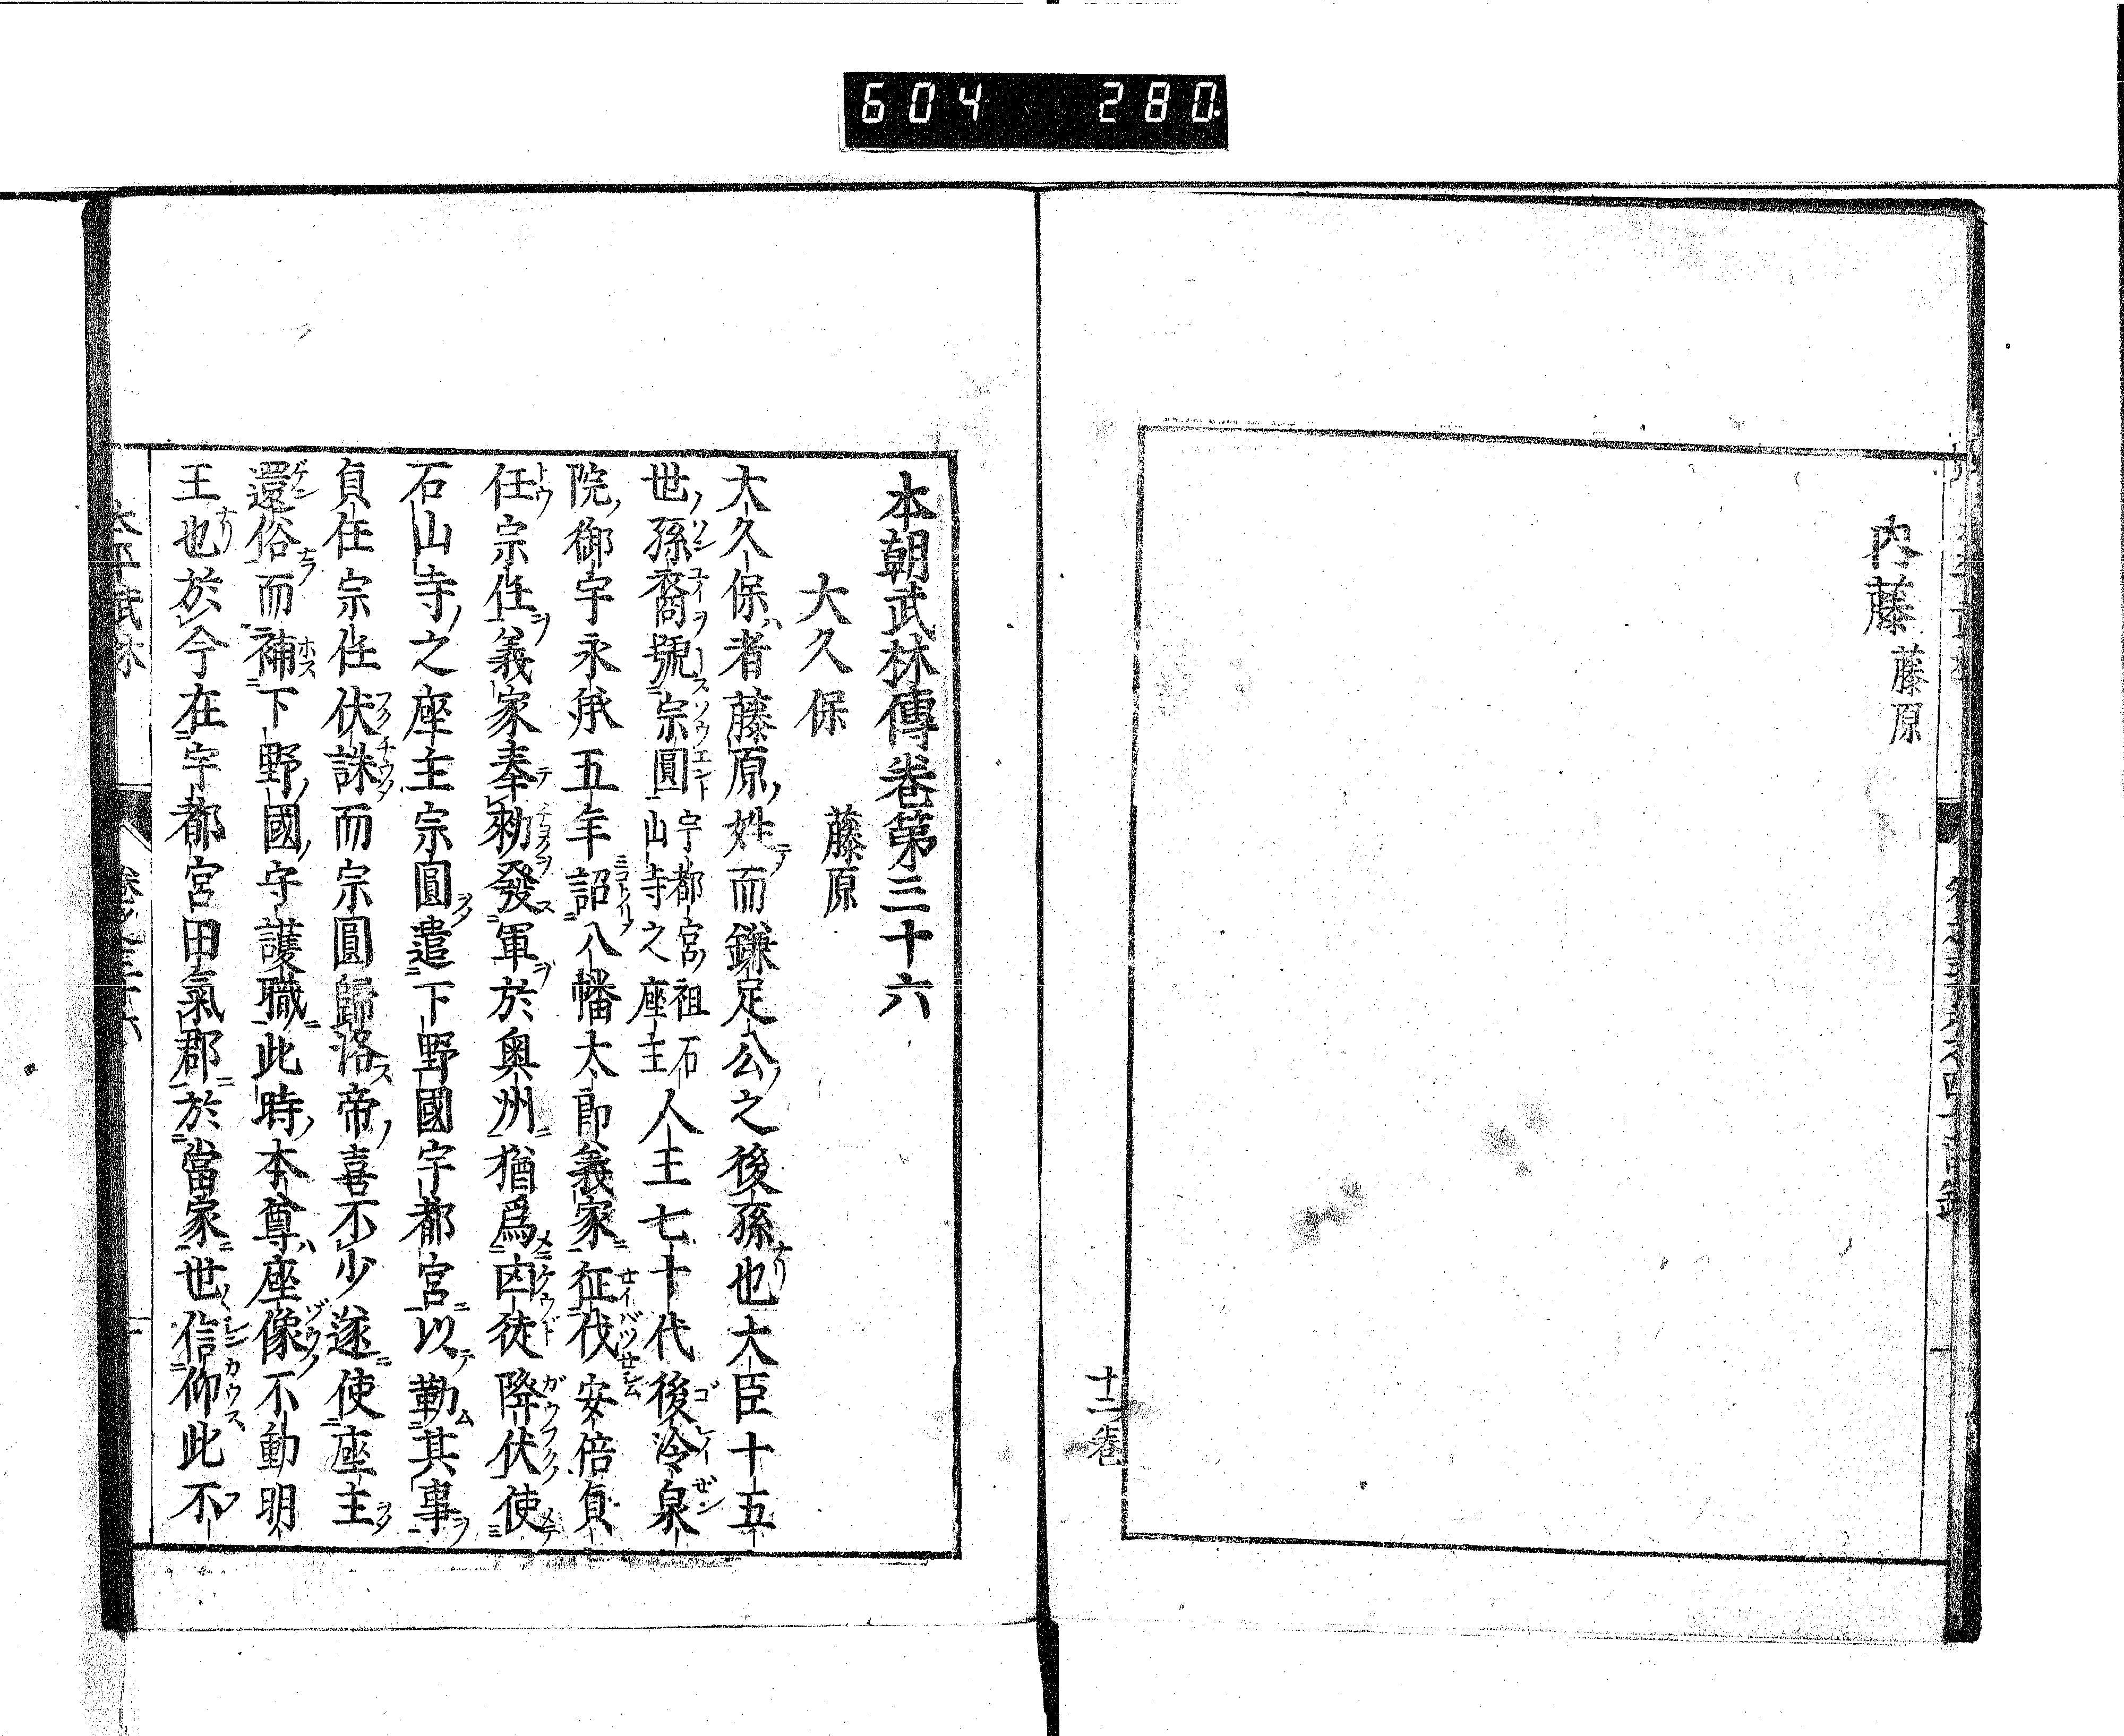 604 280
内藤 藤原
十二卷
本朝武林傳卷第三十六
大久保 藤原
大久保者藤原姓而鎌足公之後孫也大臣十五
世孫裔號宗圓宇都宮祖石山寺之座主人王七十代後冷泉
院御宇永承五年詔八幡太郎義家征伐安倍貞
任宗任義家奉勑發軍於奥州猶爲凶徒降伏使
石山寺之座主宗圓遣下野國宇都宮以勤其事
貞任宗任伏誅而宗圓歸洛帝喜不少遂使座主
還俗而補下野國守護職此時本尊座像不動明
王也於今在宇都宮田氣郡於當家世信仰此不